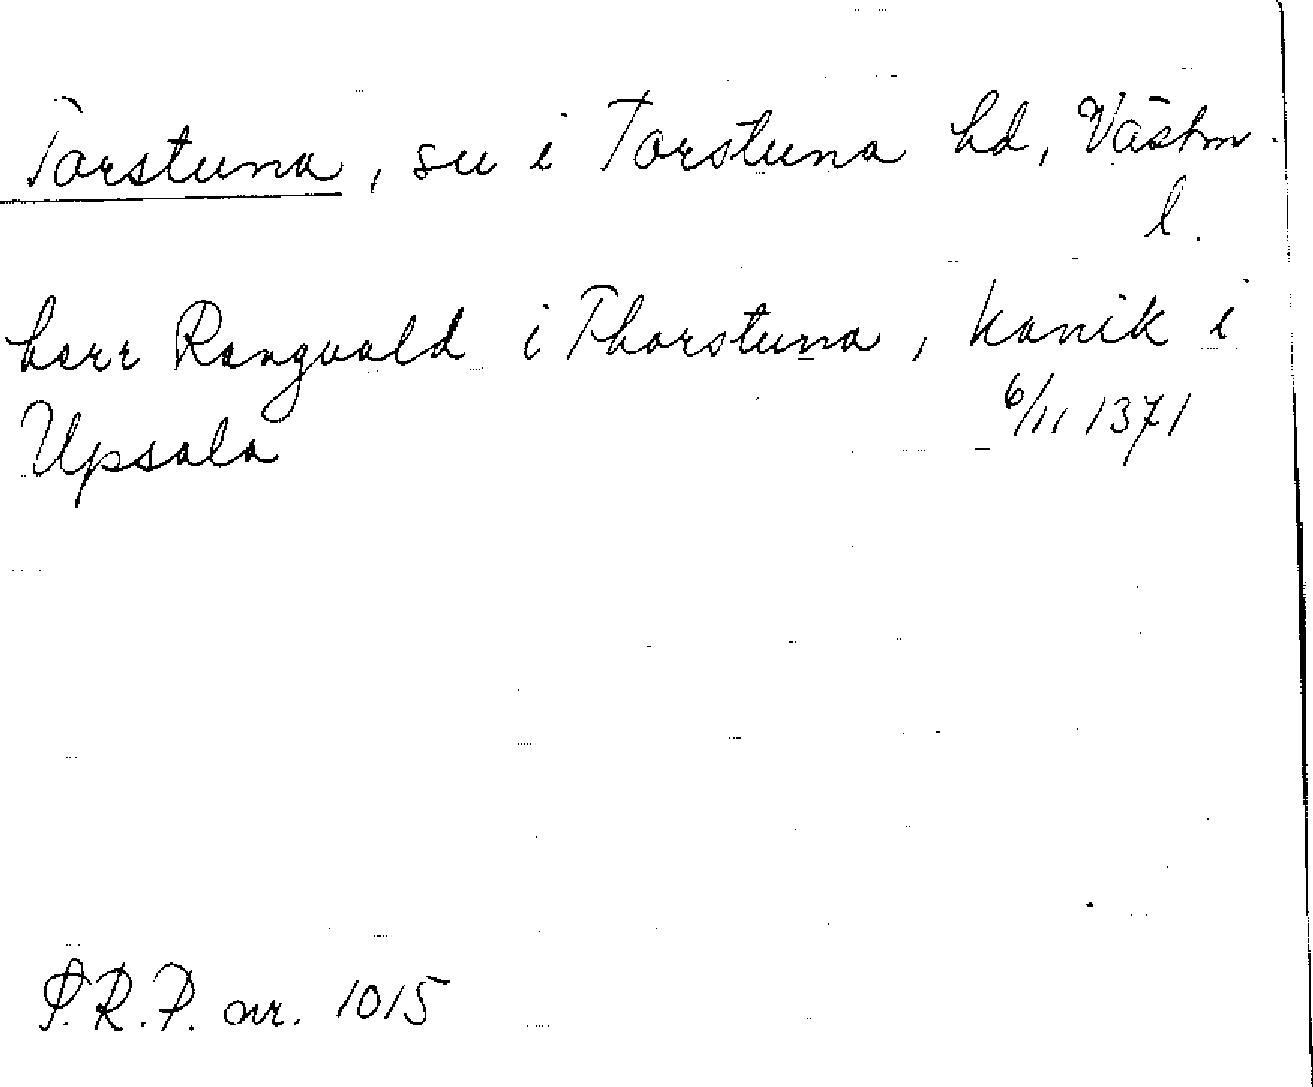 Torstuna, su i Torstuna hd, Västm.
l.
herr Rangvald i Thorstuna, kanik i
Upsala 6/11 1371
S.R.P. nr. 1015